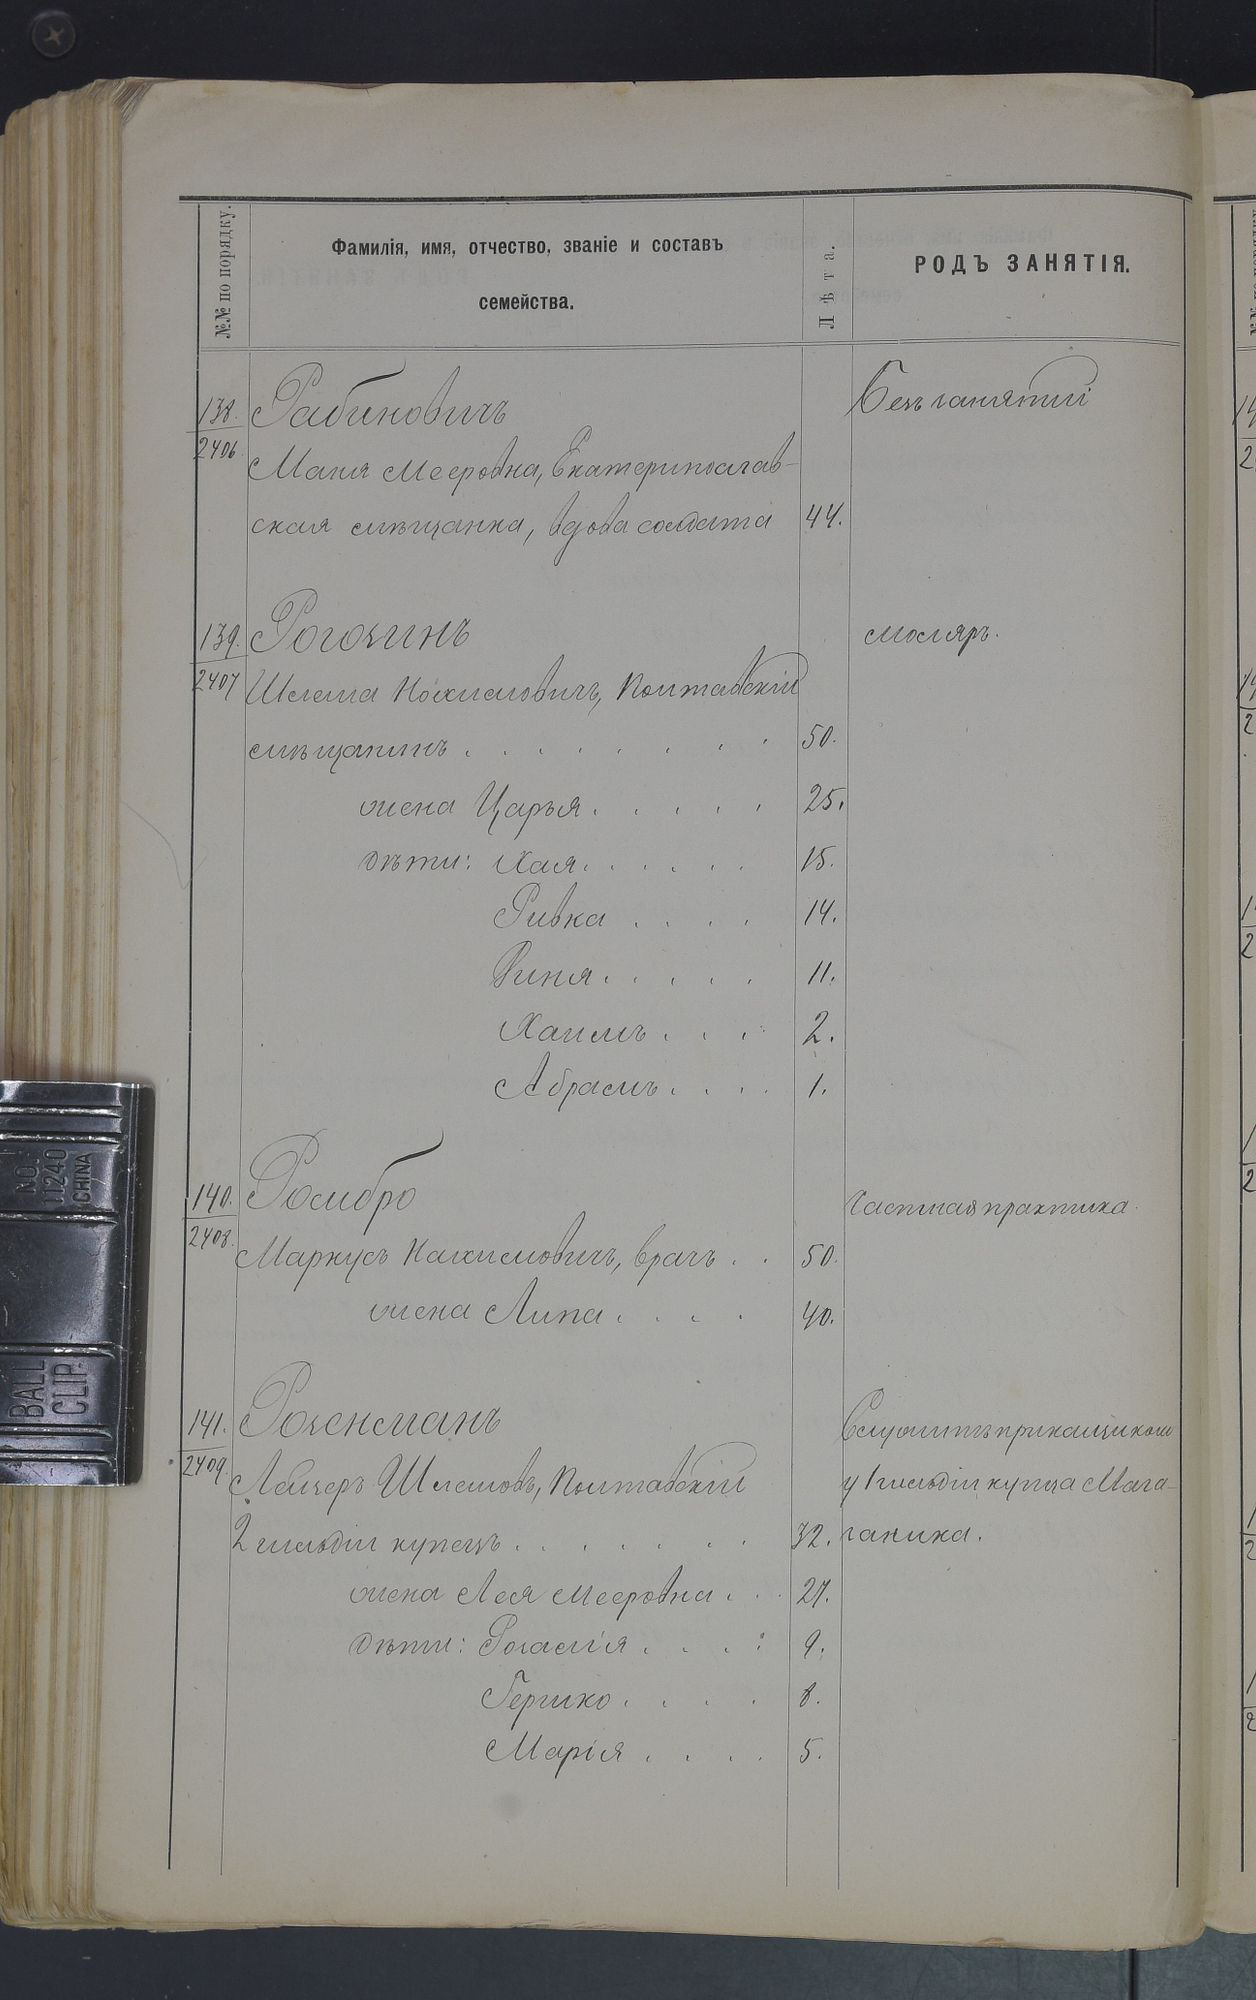 №№ по порядку.
Фамилія, имя, отчество, званіе и составъ
семейства.
Лѣта.
РОДЪ ЗАНЯТІЯ.
138.
2406
Рабиновичъ
Безъ занятій
Маня Мееровна, Екатеринослав-
ская мѣщанка, вдова солдата 44.
139.
2407
Рогозинъ
маляръ.
Шлема Нохимовичъ, Полтавскій
мѣщанинъ . . . . . . . 50.
жена Царья . . . . . 25.
дѣти: Хая . . . . . 15.
Ривка . . . . 14.
Риня . . . . . 11.
Хаимъ . . . 2.
Абрамъ . . . . 1.
140.
2408.
Росибро
Частная практика.
Маркусъ Нахимовичъ, врачъ . . 50.
жена Липа . . . . 40.
141.
2409.
Розенманъ
Служитъ прикащикомъ
Лейзеръ Шлемовъ, Полтавскій
у 1 гильдіи купца Мага-
2 гильдіи купецъ . . . . . . . 32.
заника.
жена Лея Мееровна . . . 27.
дѣти: Розалія . . . . 9.
Гершко . . . . 8.
Марія . . . . 5.
NO.
11240
CHINA
BALL
CLIP.